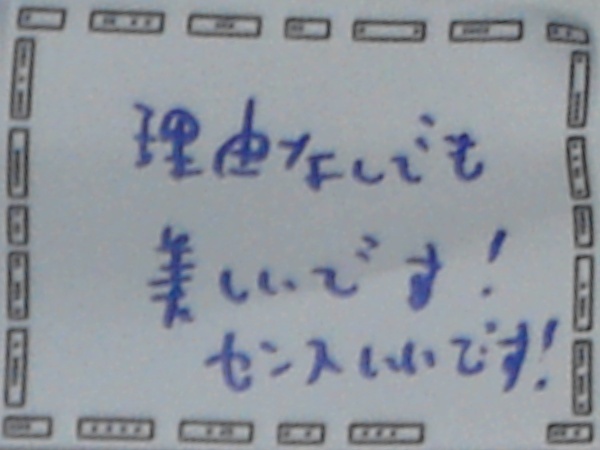 理由なしでも
美しいです!
センスいいです!